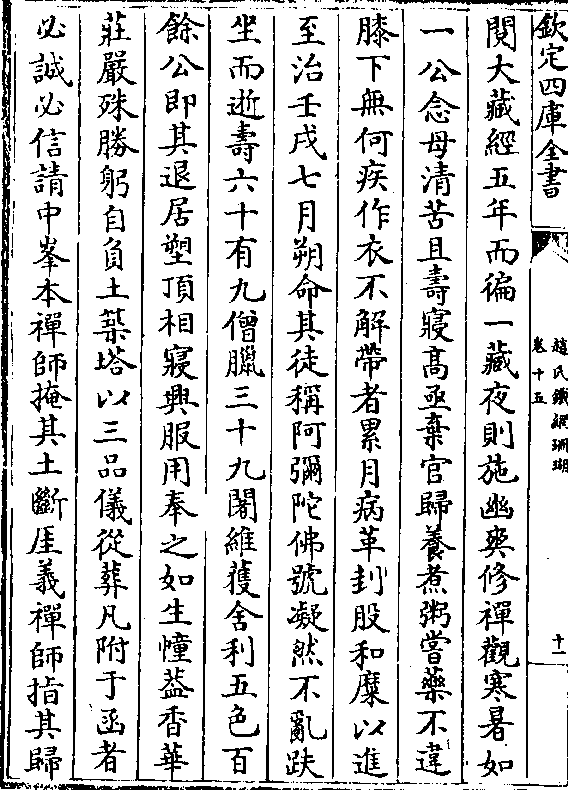 欽定四庫全書
趙氏鐵網珊瑚
卷十五
十一
閱大藏經五年而徧一藏夜則施幽爽修禪觀寒暑如
一公念母清苦且壽寢高亟棄官歸養煮粥嘗藥不違
膝下無何疾作衣不解帶者累月病革刲股和糜以進
至治壬戌七月朔命其徒稱阿彌陀佛號凝然不亂趺
坐而逝壽六十有九僧臘三十九闍維獲舍利五色百
餘公即其退居塑頂相寢興服用奉之如生幢葢香華
莊嚴殊勝躬自負土築塔以三品儀從葬凡附于函者
必誠必信請中峯本禪師掩其土斷厓義禪師指其歸